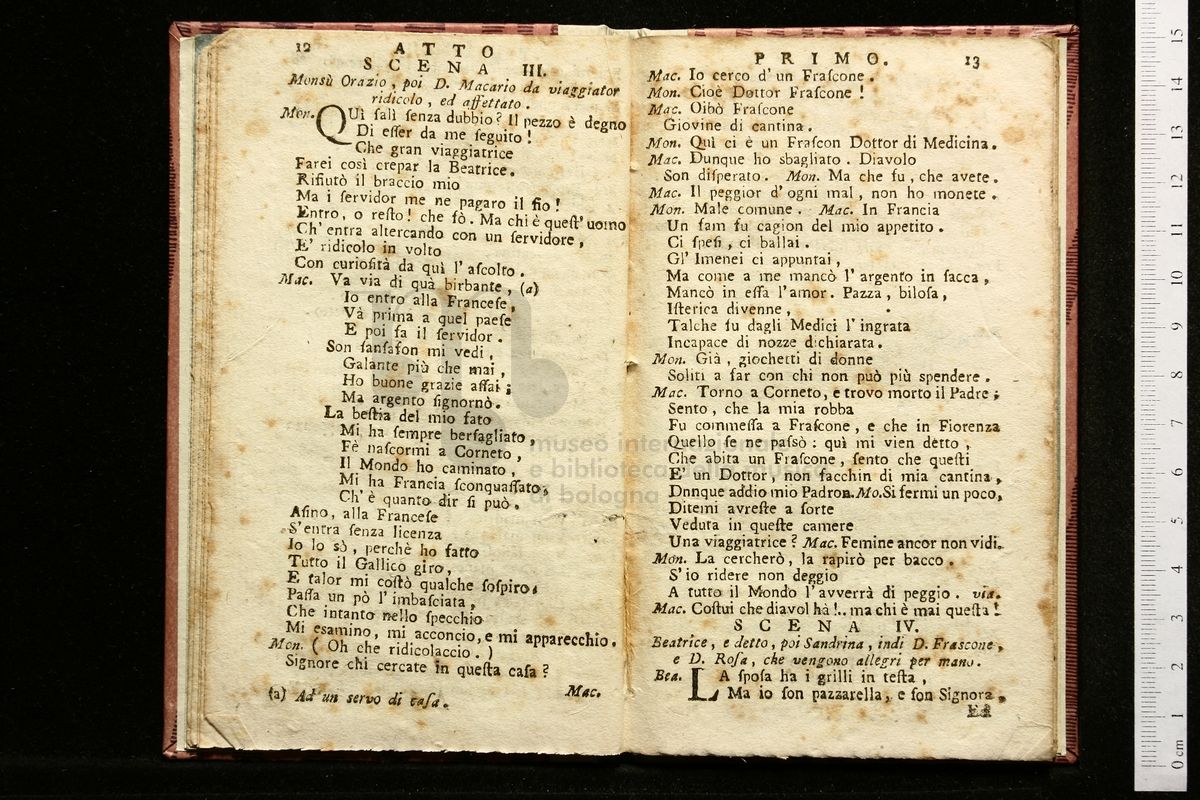 12 ATTO
SCENA III.
Monsù Orazio, poi D. Macario da viaggiator
ridicolo, ed affettato.
Mon. QUì salì senza dubbio? Il pezzo è degno
Di esser da me seguito!
Che gran viaggiatrice
Farei così crepar la Beatrice.
Rifiutò il braccio mio
Ma i servidor me ne pagaro il fio!
Entro, o resto! che fò. Ma chi è quest' uomo
Ch' entra altercando con un servidore,
E' ridicolo in volto
Con curiosità da quì l' ascolto.
Mac. Va via di quà birbante, (a)
Io entro alla Francese,
Và prima a quel paese
E poi fa il servidor.
Son fansafon mi vedi,
Galante più che mai,
Ho buone grazie assai;
Ma argento signornò.
La bestia del mio fato
Mi ha sempre bersagliato,
Fè nascormi a Corneto,
Il Mondo ho caminato,
Mi ha Francia sconquassato,
Ch' è quanto dir si può.
Asino, alla Francese
S'entra senza licenza
Io lo sò, perchè ho fatto
Tutto il Gallico giro,
E talor mi costò qualche sospiro.
Passa un pò l' imbasciata,
Che intanto nello specchio
Mi esamino, mi acconcio, e mi apparecchio.
Mon. ( Oh che ridicolaccio. )
Signore chi cercate in questa casa?
Mac.
(a) Ad un servo di casa.
PRIMO. 13
Mac. Io cerco d' un Frascone.
Mon. Cioè Dottor Frascone!
Mac. Oibò Frascone
Giovine di cantina.
Mon. Quì ci è un Frascon Dottor di Medicina.
Mac. Dunque ho sbagliato. Diavolo
Son disperato. Mon. Ma che fu, che avete.
Mac. Il peggior d' ogni mal, non ho monete.
Mon. Male comune. Mac. In Francia
Un fam fu cagion del mio appetito.
Ci spesi, ci ballai.
Gl' Imenei ci appuntai,
Ma come a me mancò l' argento in sacca,
Mancò in essa l'amor. Pazza, bilosa,
Isterica divenne,
Talche fu dagli Medici l' ingrata
Incapace di nozze dichiarata.
Mon. Già, giochetti di donne
Soliti a far con chi non può più spendere.
Mac. Torno a Corneto, e trovo morto il Padre;
Sento, che la mia robba
Fu commessa a Frascone, e che in Fiorenza
Quello se ne passò: quì mi vien detto,
Che abita un Frascone, sento che questi
E' un Dottor, non facchin di mia cantina,
Dnnque addio mio Padron. Mo. Si fermi un poco,
Ditemi avreste a sorte
Veduta in queste camere
Una viaggiatrice? Mac. Femine ancor non vidi.
Mon. La cercherò, la rapirò per bacco.
S' io ridere non deggio
A tutto il Mondo l' avverrà di peggio. via.
Mac. Costui che diavol hà!.. ma chi è mai questa!
SCENA IV.
Beatrice, e detto, poi Sandrina, indi D. Frascone,
e D. Rosa, che vengono allegri per mano.
Bea. LA sposa ha i grilli in testa,
Ma io son pazzarella, e son Signora,
museo internazionale
e biblioteca della musica
di bologna
0 cm 1 2 3 4 5 6 7 8 9 10 11 12 13 14 15